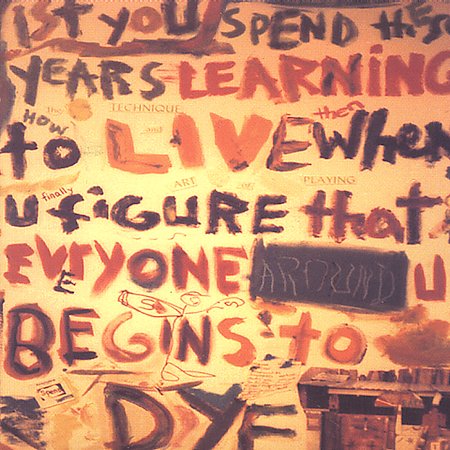 1ST YOU SPEND these
YEARS LEARNING
the TECHNIQUE
HOW then
to LIVE When
and
ART of PLAYING
finally
U FIGURE that
EVERYONE AROUND U
BEGINS to
DYE